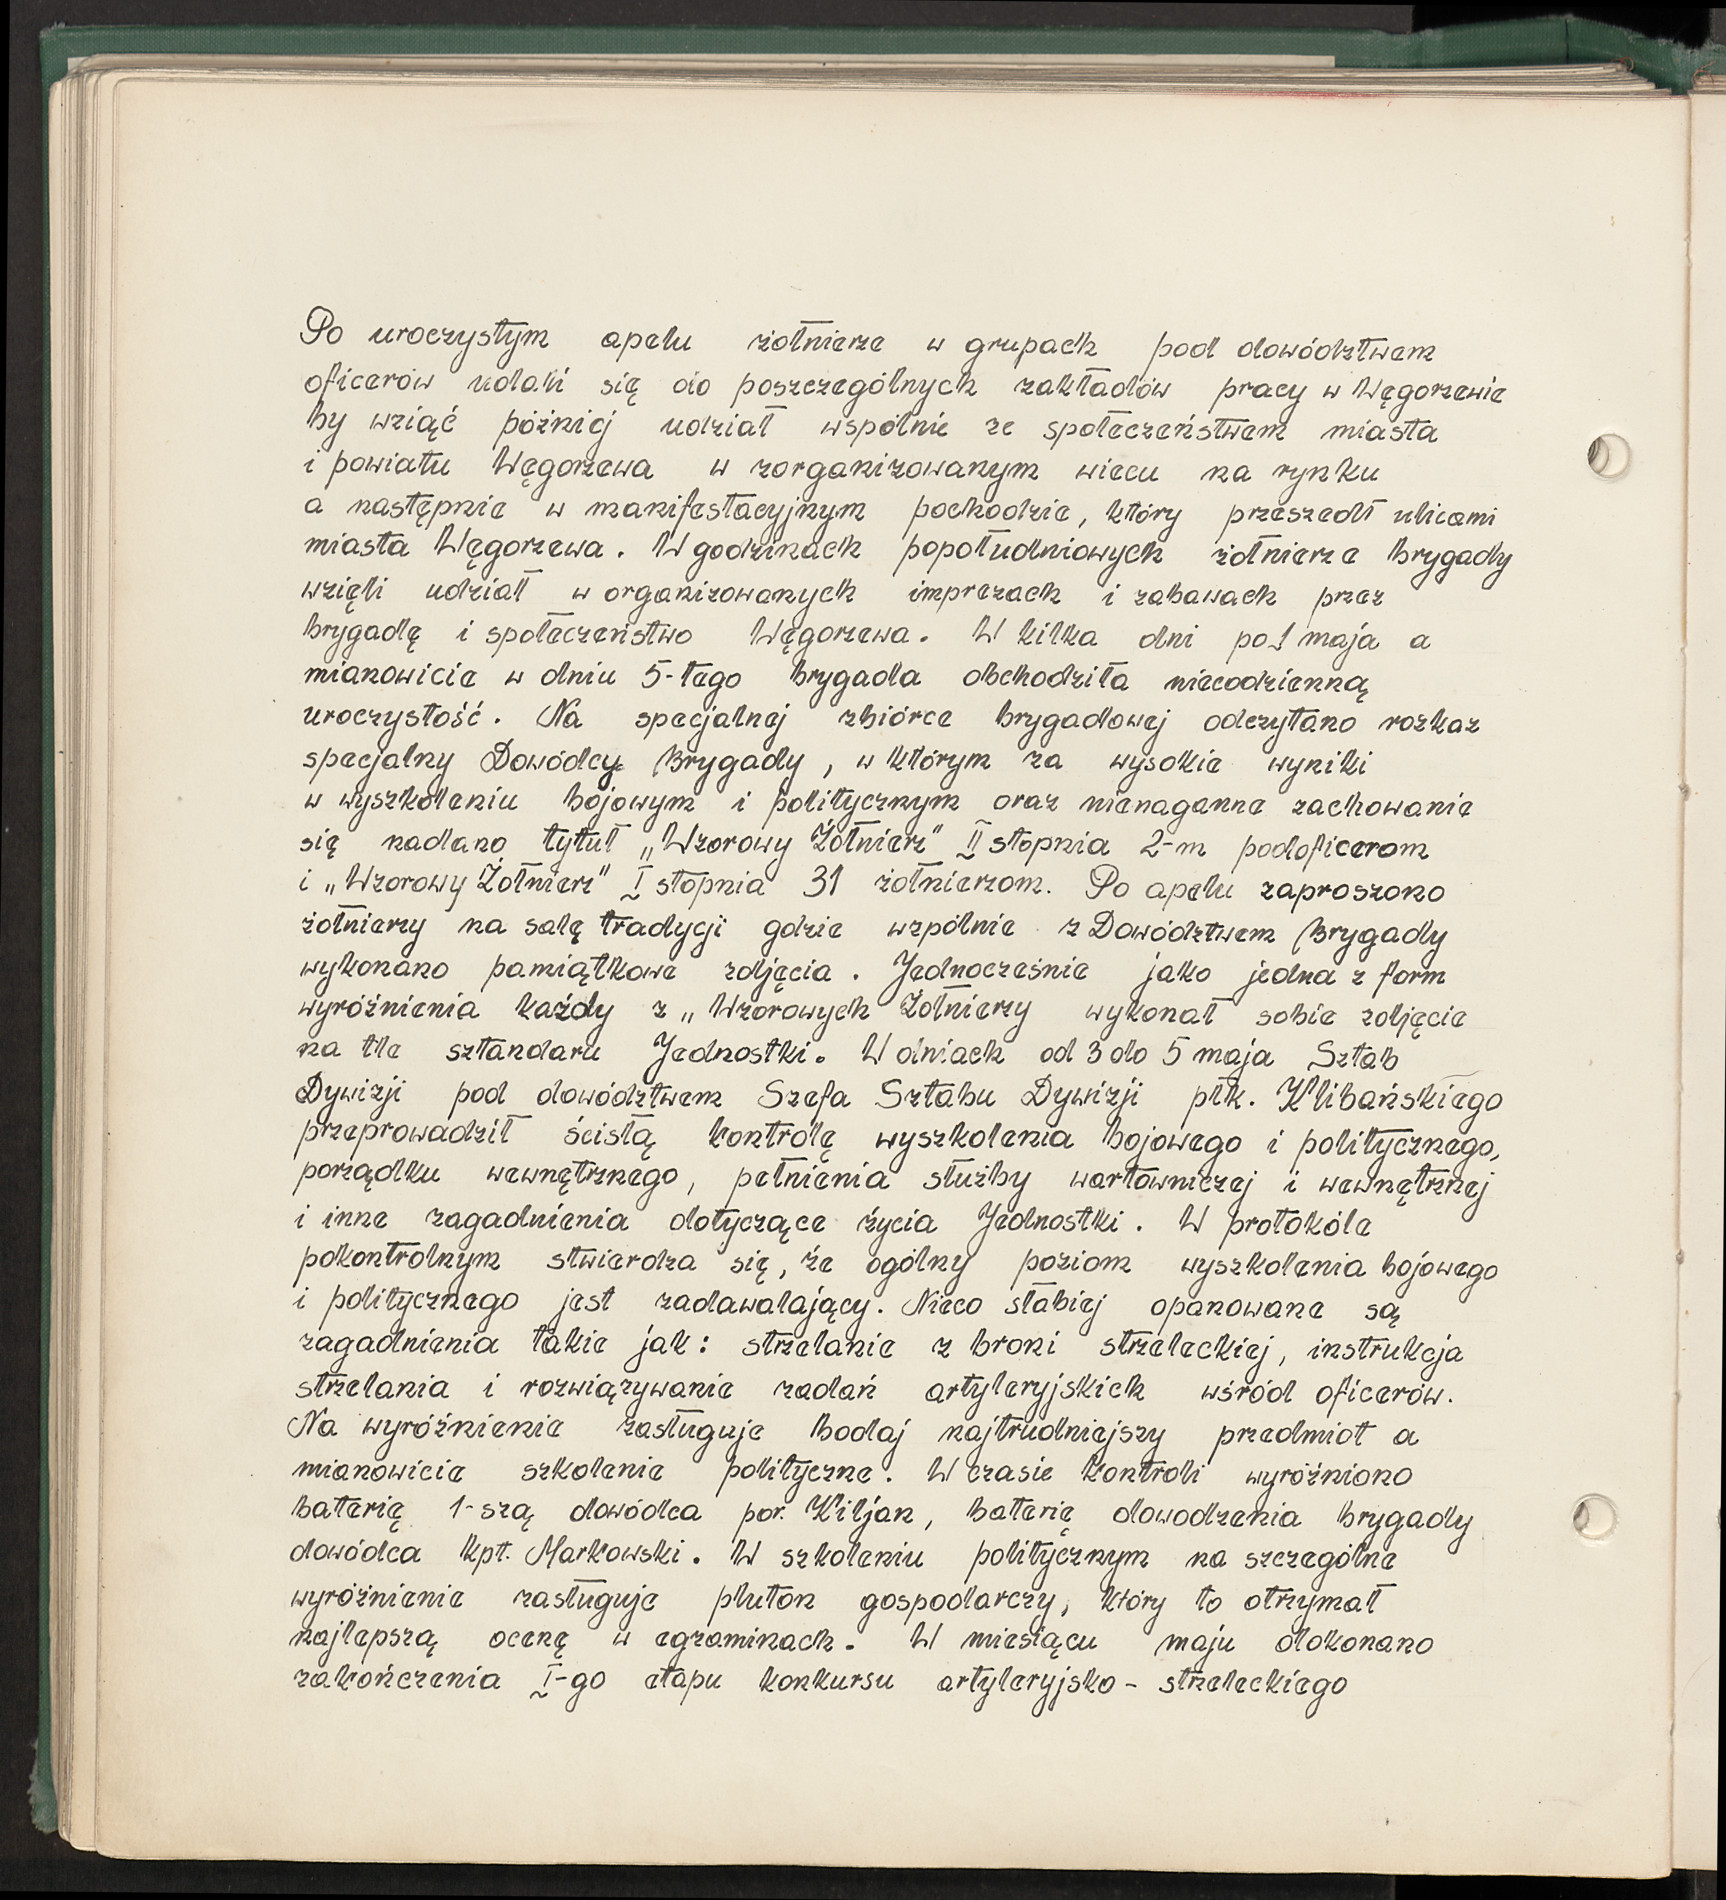 Po uroczystym apelu żołnierze w grupach pod dowództwem
oficerów udali się do poszczególnych zakładów pracy w Węgorzewie
by wziąć póżniej udział wspólnie ze społeczeństwem miasta
i powiatu Węgorzewa w zorganizowanym wiecu na rynku
a następnie w manifestacyjnym pochodzie, który przeszedł ulicami
miasta Węgorzewa. W godzinach popołudniowych żołnierze brygady
wzięli udział w organizowanych imprezach i zabawach przez
brygadę i społeczeństwo Węgorzewa. W kilka dni po 1 maja a
mianowicie w dniu 5-tego brygada obchodziła niecodzienną
uroczystość. Na specjalnej zbiórce brygadowej odczytano rozkaz
specjalny Dowódcy Brygady, w którym za wysokie wyniki
w wyszkoleniu bojowym i politycznym oraz nienaganne zachowanie
się nadano tytuł „Wzorowy Żołnierz" II stopnia 2-m podoficerom
i „Wzorowy Żołnierz" I stopnia 31 żołnierzom. Po apelu zaproszono
żołnierzy na salę tradycji gdzie wzpólnie z Dowództwem Brygady
wykonano pamiątkowe zdjęcia. Jednocześnie jako jedna z form
wyróżnienia każdy z „Wzorowych Żołnierzy wykonał sobie zdjęcie
na tle sztandaru Jednostki. W dniach od 3 do 5 maja Sztab
Dywizji pod dowództwem Szefa Sztabu Dywizji płk. Klibańskiego
przeprowadził ścisłą kontrolę wyszkolenia bojowego i politycznego,
porządku wewnętrznego, pełnienia służby wartowniczej i wewnętrznej
i inne zagadnienia dotyczące życia Jednostki. W protokóle
pokontrolnym stwierdza się, że ogólny poziom wyszkolenia bojowego
i politycznego jest zadawalający. Nieco słabiej opanowane są
zagadnienia takie jak: strzelanie z broni strzeleckiej, instrukcja
strzelania i rozwiązywanie zadań artyleryjskich wśród oficerów.
Na wyróżnienie zasługuje bodaj najtrudniejszy przedmiot a
mianowicie szkolenie polityczne. W czasie kontroli wyróżniono
baterię 1-szą dowódca por. Kiljan, baterię dowodzenia brygady
dowódca kpt. Markowski. W szkoleniu politycznym na szczególne
wyróżnienie zasługuje pluton gospodarczy, który to otrzymał
najlepszą ocenę w egzaminach. W miesiącu maju dokonano
zakończenia I-go etapu konkursu artyleryjsko - strzeleckiego